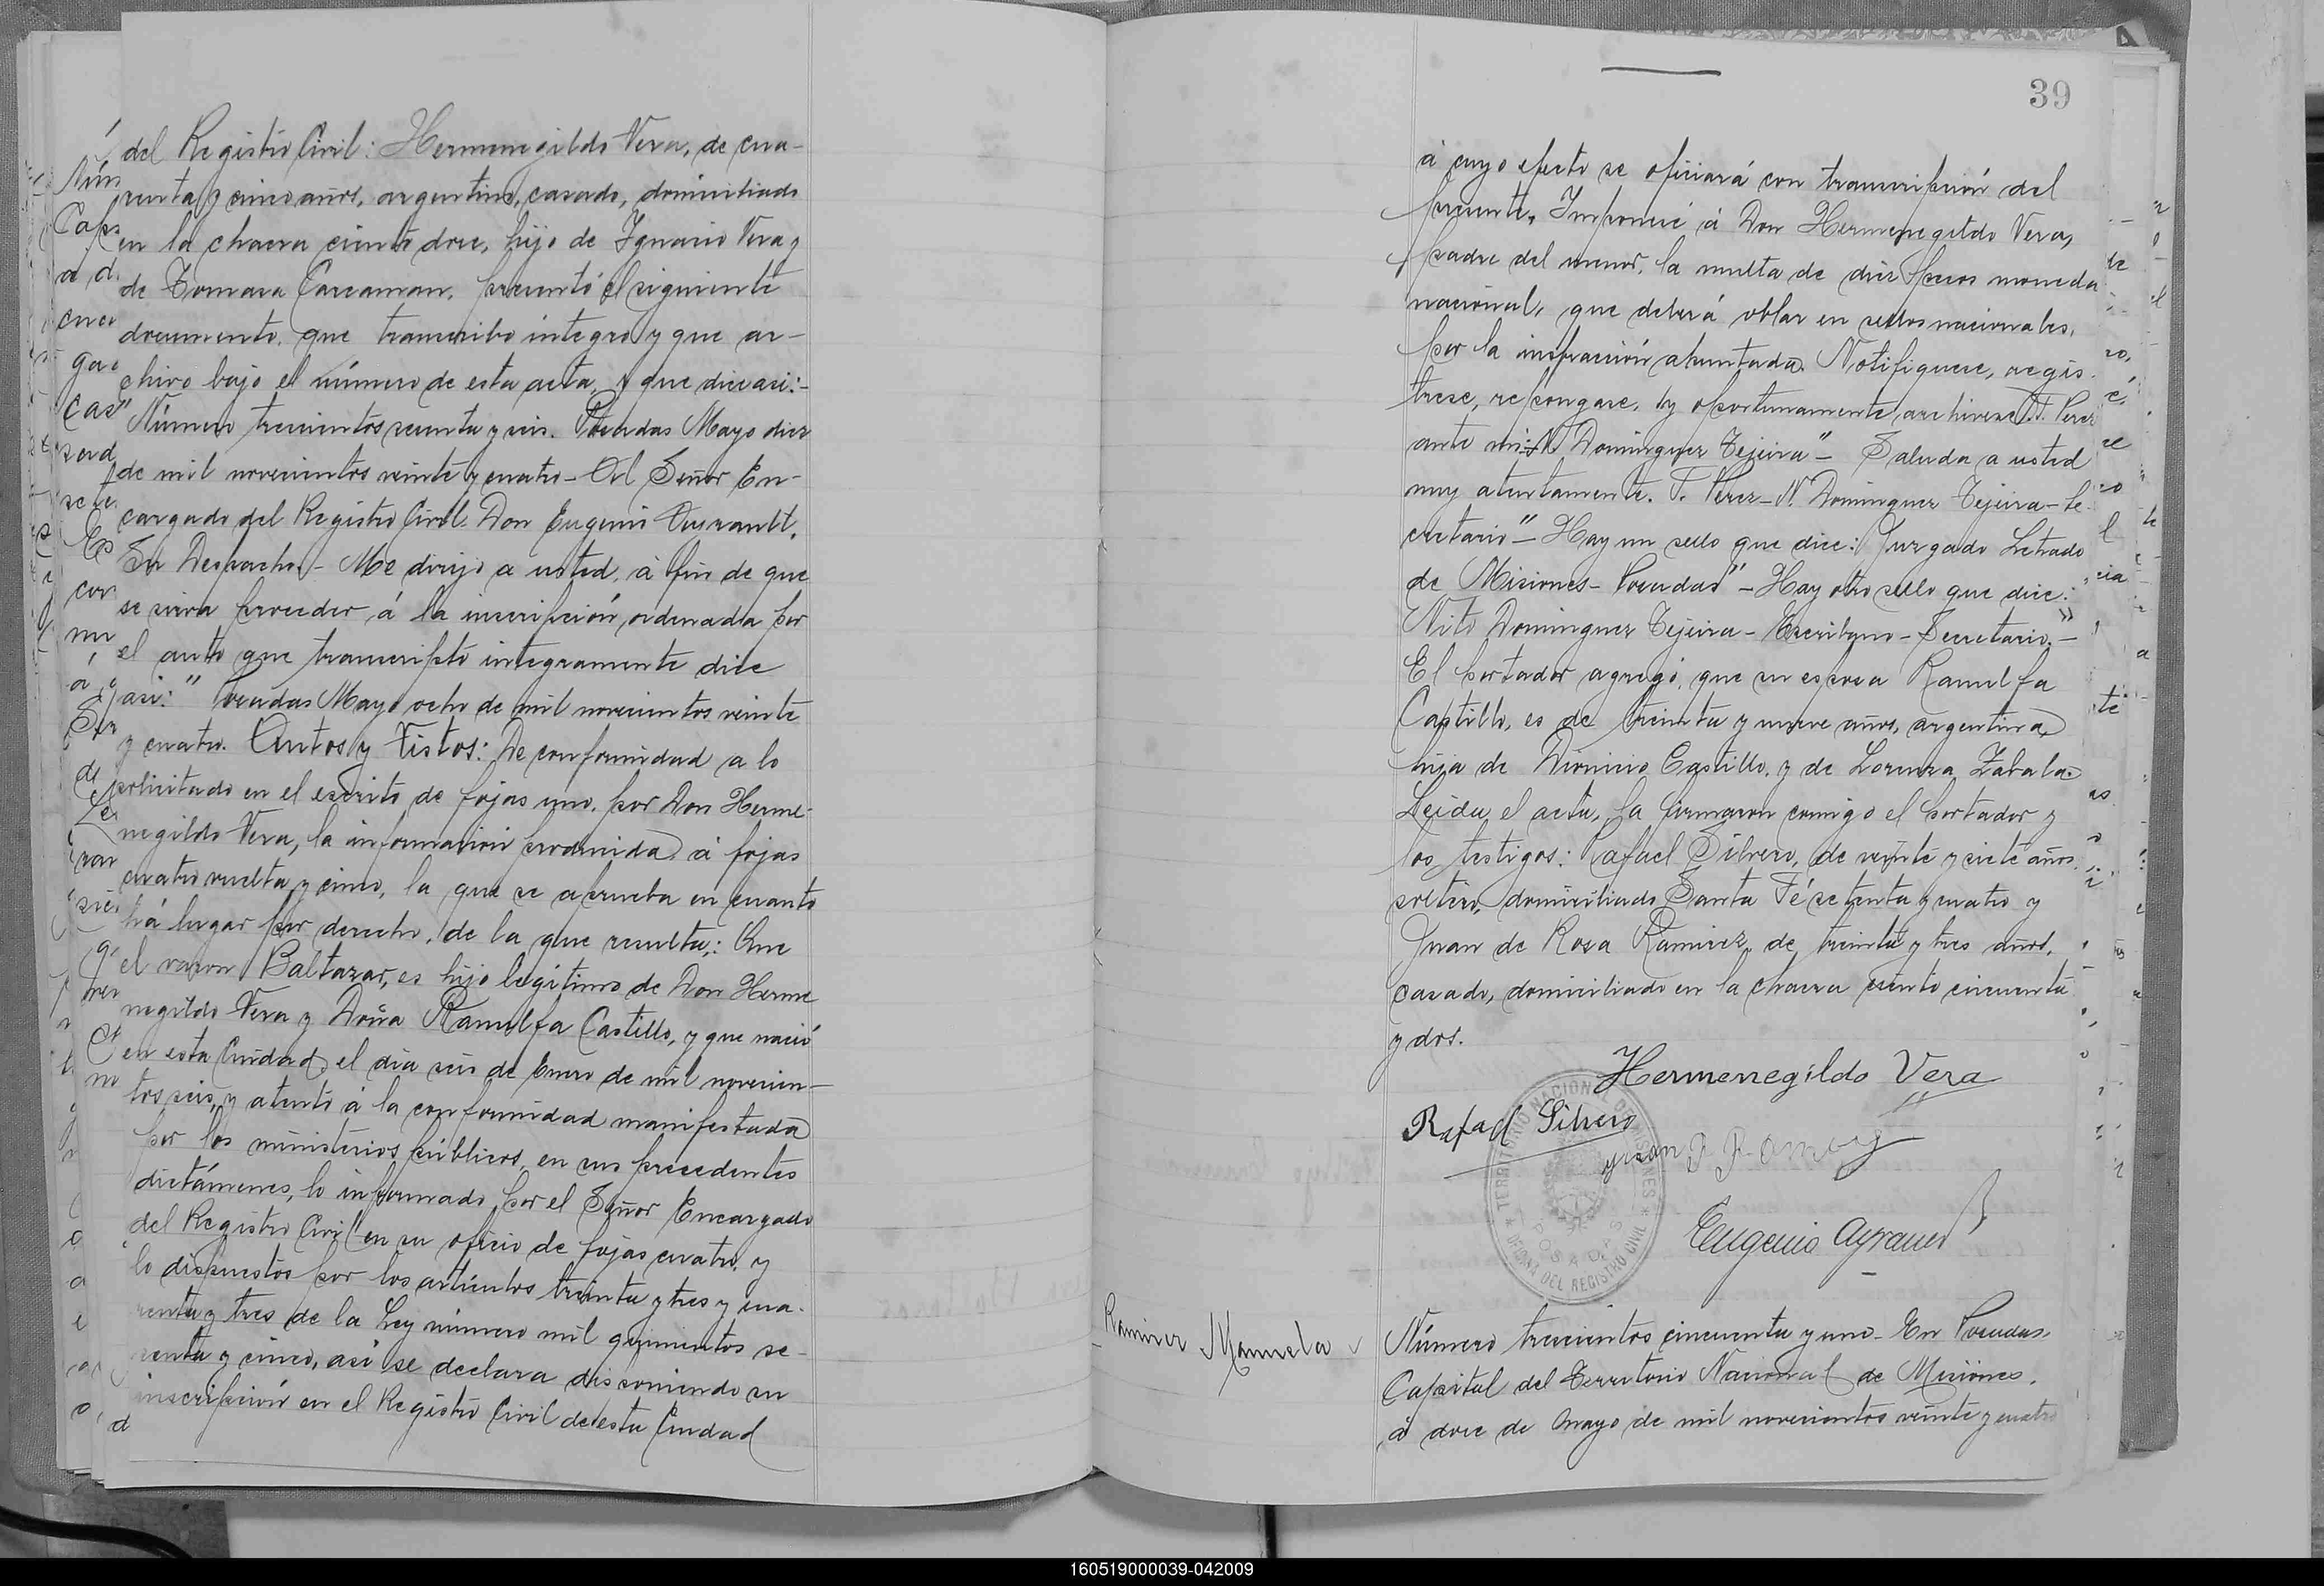 del Registro Civil: Hermenegildo Vera, de cua-
renta y cinco años, argentino, casado, domiciliado
en la chacra ciento doce, hijo de Ignacio Vera y
de Tomasa Carcaman, presentó el siguiente
documento, que transcribo integro y que ar-
chivo bajo el número de esta acta, y que dice asi:-
"Número trescientos sesenta y seis. Posadas Mayo diez
de mil novecientos veinte y cuatro - Al Señor En-
cargado del Registro Civil Don Eugenio
Su Despacho - Me dirijo a usted, á fin de que
se sirva proceder á la inscripción, ordenada por
el auto que transcripto integramente dice
asi:" Posadas Mayo ocho de mil novecientos veinte
y cuatro. Autos y Vistos: De conformidad a lo
solicitado en el escrito de fojas uno, por Don Herme-
negildo Vera, la información producida á fojas
cuatro vuelta y cinco, la que se aprueba en cuanto
há lugar por derecho, de la que resulta: Que
el varon Baltazar, es hijo legitimo de Don Herme
negildo Vera y Doña Ramulfa Castillo, y que nació
en esta Ciudad, el dia seis de Enero de mil novecien-
tos seis, y atento á la conformidad manifestada
por los ministerios públicos, en sus precedentes
dictámenes, lo informado por el Señor Encargado
del Registro Civil en su oficio de fojas cuatro, y
lo dispuestos por los artículos treinta y tres y cua-
renta y tres de la Ley número mil quinientos se-
senta y cinco, asi se declara disponiendo su
inscripción en el Registro Civil de esta Ciudad
39
á cuyo efecto se oficiará con transcripción del
presente. Imponese á Don Hermenegildo Vera,
padre del menor, la multa de diez pesos moneda
nacional, que deberá oblar en sellos nacionales,
por la infracción apuntada. Notifiquese, regis-
trese, repongase, y oportunamente, archivese. T. Perez
ante mi: N. Dominguez Tejeira" - Saluda a usted
muy atentamente. T. Perez - N. Dominguez Tejeira - Se-
cretario" - Hay un sello que dice: Juzgado Letrado
de Misiones - Posadas" - Hay otro sello que dice:
Dominguez Tejeira - Escribano - Secretario." -
El portador agregó, que su esposa Ramulfa
Castillo, es de treinta y nueve años, argentina,
hija de Dionicio Castillo, y de Lorenza Zabala.
Leida el acta, la firmaron conmigo el portador y
los testigos: Rafael Silvero, de veinte y siete años,
soltero, domiciliado Santa Fé setenta y cuatro y
Juan de Rosa Ramirez, de treinta y tres años,
casado, domiciliado en la chacra ciento cincuenta
y dos.
Hermenegildo Vera
Rafael Silvero
Juan
Eugenio
TERRITORIO NACIONAL DE MISIONES
POSADAS
OFICINA DEL REGISTRO CIVIL
Ramirez Manuela
Número trescientos cincuenta y uno - En Posadas,
Capital del Territorio Nacional de Misiones,
á doce de Mayo de mil novecientos veinte y cuatro
160519000039-042009